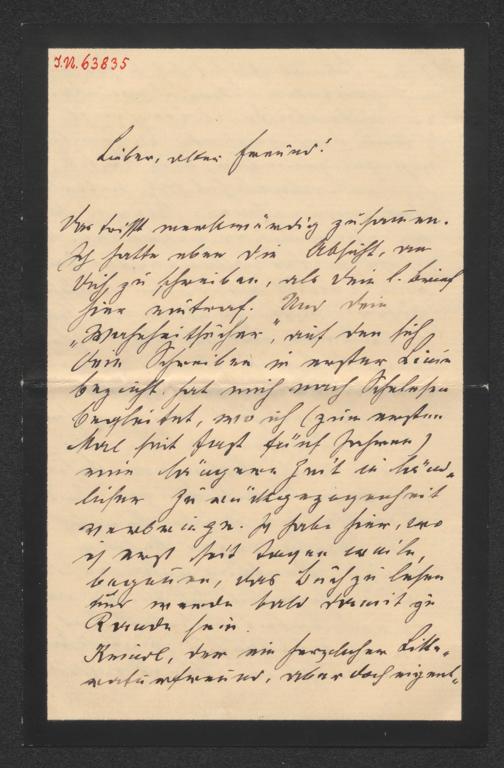 J.N. 63835
Lieber, alter Freund!
Das trifft merkwürdig zusammen.
Ich hatte eben die Absicht, an
Dich zu schreiben, als Dein l. Brief
hier eintraf. Und Dein
„Wahrheitsucher“, auf den sich
Dein Schreiben in erster Linie
bezieht, hat mich nach
begleitet, wo ich (zum ersten
Mal seit fast fünf Jahren)
eine längere Zeit in länd-
licher Zurückgezogenheit
verbringe. Ich habe hier, wo
ich erst seit Tagen weile,
begonnen, das Buch zu lesen
und werde bald damit zu
Rande sein.
der ein herzlicher Litte-
raturfreund, aber doch eigent-